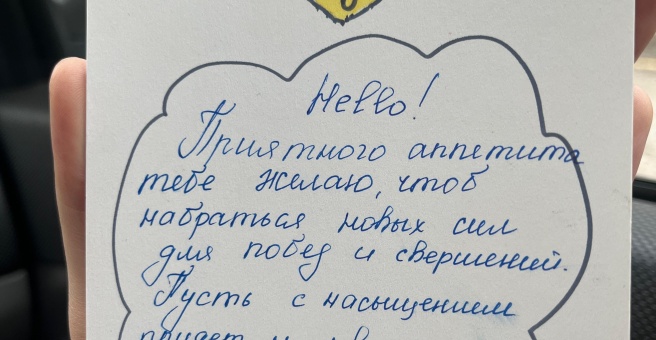 Hello!
Приятного аппетита
тебе желаю, чтоб
набраться новых сил
для побед и свершений.
Пусть с насыщением
придет